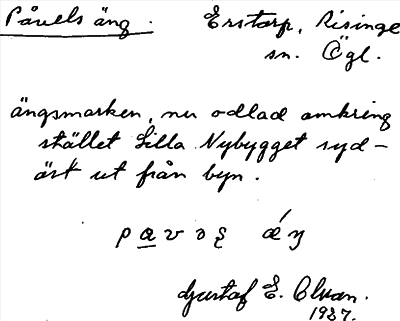 Påvels äng. Erstorp, Risinge
sn. Ögl.
ängsmarken, nu odlad omkring
stället Lilla Nybygget syd-
öst ut från byn.
Gustaf E.
1937.